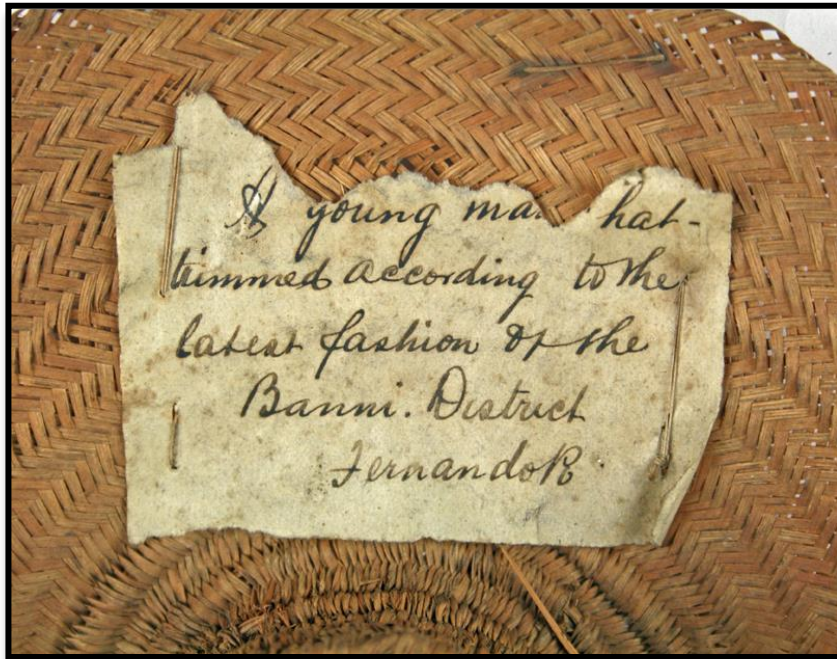 A young man hat-
trimmed according to the
latest fashion of the
Banni. District
Fernando Po